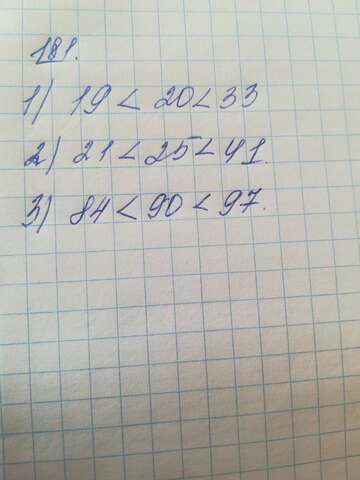 181.
1) 19 < 20 < 33
2) 21 < 25 < 41.
3) 84 < 90 < 97.